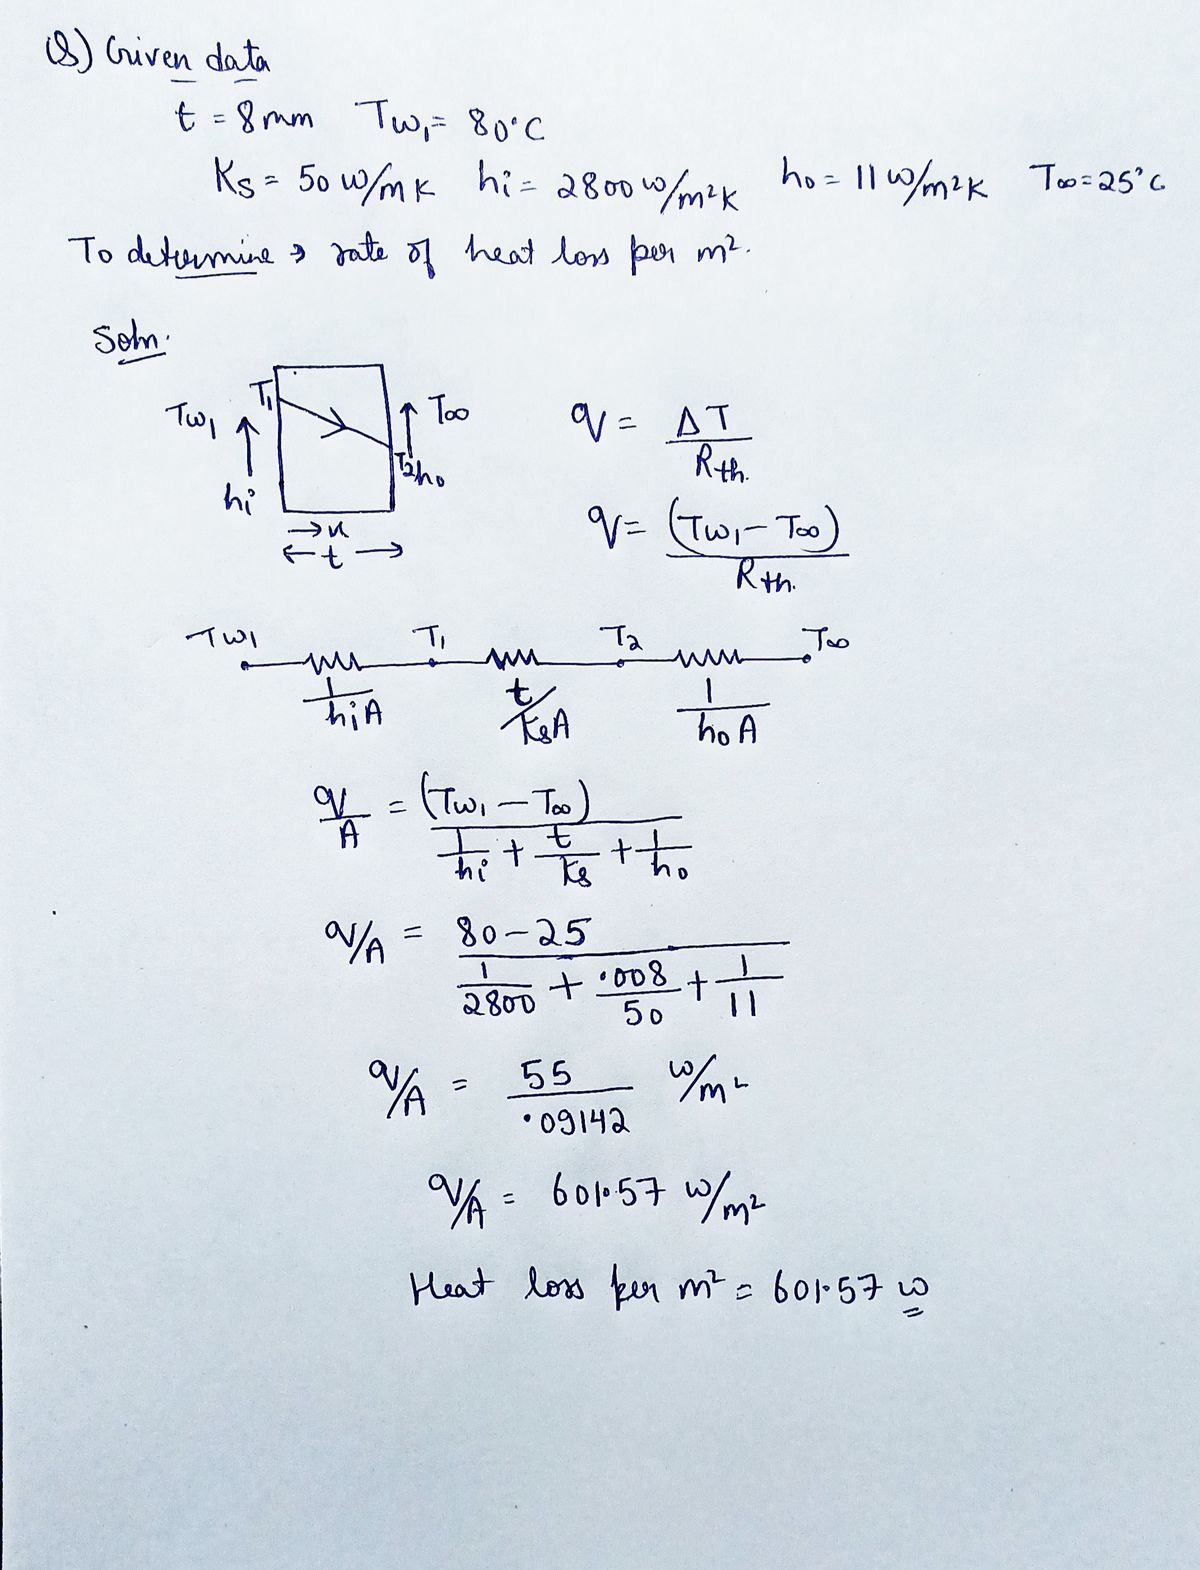 Q) Given data
t = 8mm Tw₁ = 80°C
Ks = 50 w/mk hi = 2800 w/m²k ho = 11 w/m²k T∞ = 25°C
To determine → rate of heat loss per m².
Soln.
Tw₁ T₁ T∞
hi T₂ ho
→ x
← t →
q = ΔT / Rth.
q = (Tw₁ - T∞) / Rth.
Tw₁ T₁ T₂ T∞
1/hiA t/ksA 1/hoA
q/A = (Tw₁ - T∞) / (1/hi + t/ks + 1/ho)
q/A = 80-25 / (1/2800 + .008/50 + 1/11)
q/A = 55/.09142 w/m²
q/A = 601.57 w/m²
Heat loss per m² = 601.57 w